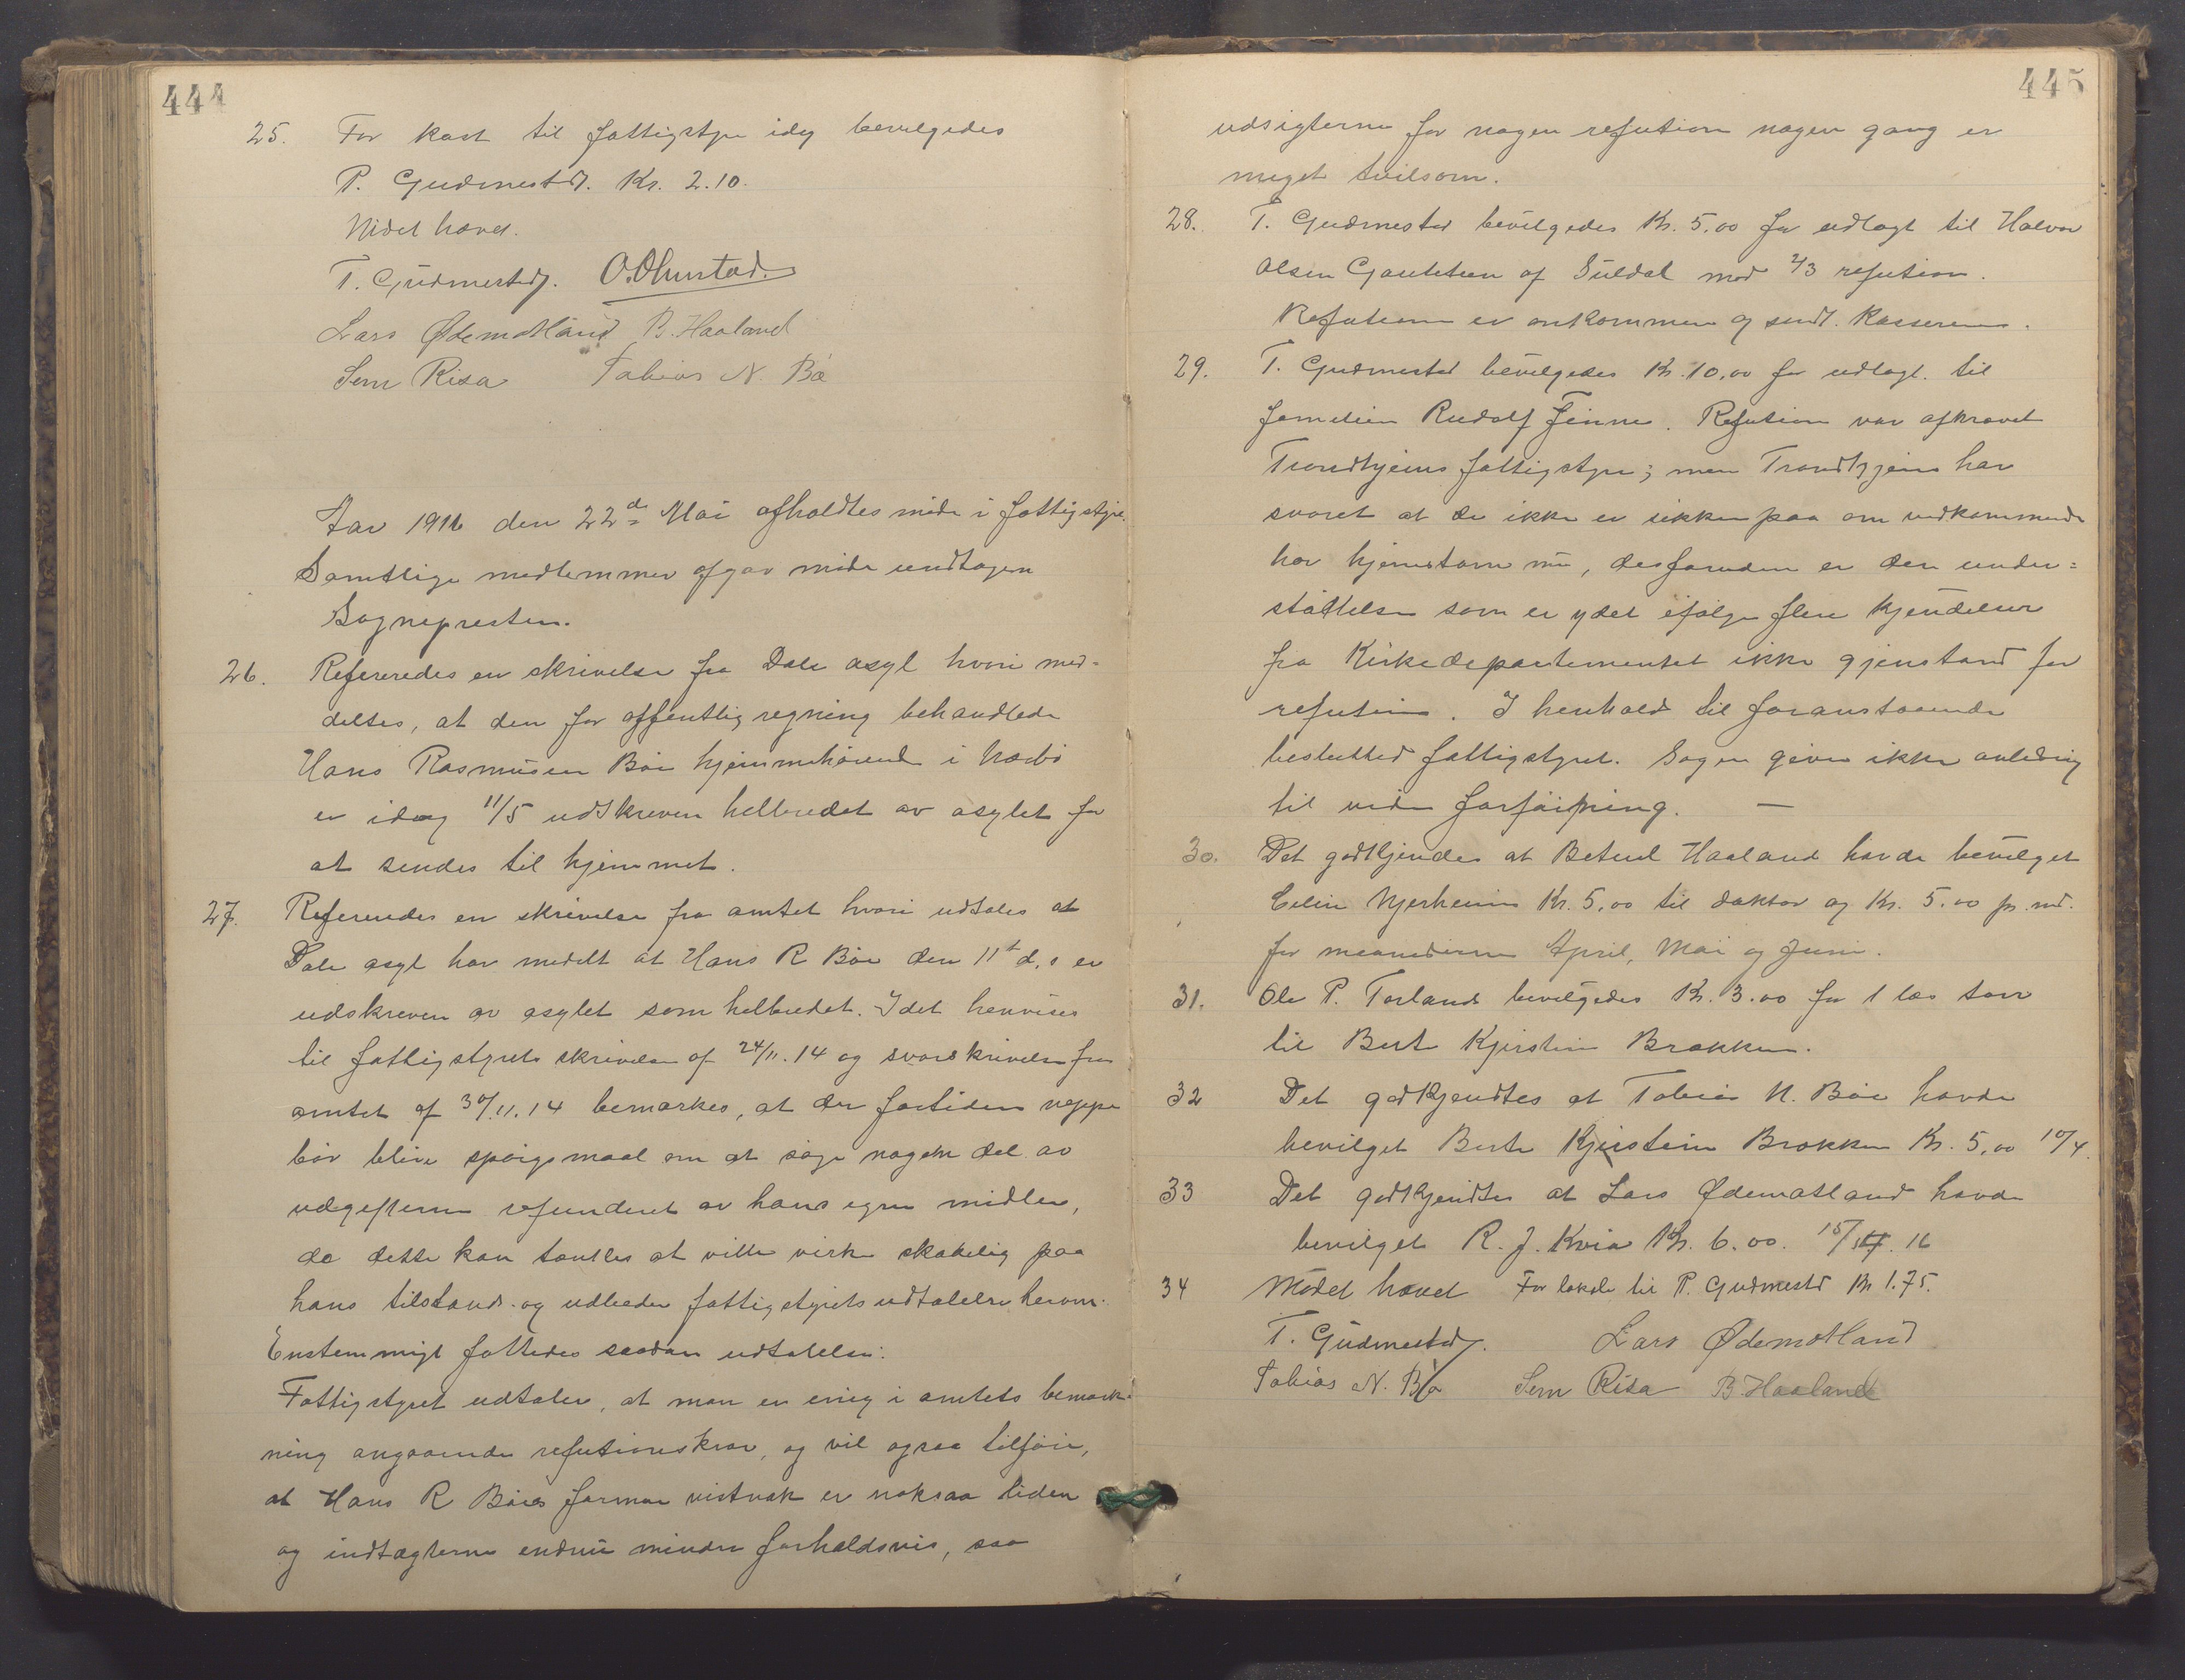 444
25. For kost til fattigstyre idag bevilgedes
P. Gudmestd. Kr. 2.10.
Mødet hævet.
T. Gudmestad. O. Olmstad.
Lars Ødemotland B. Haaland
Sem Risa Tobias N. Bø
Aar 1916 den 22de Mai afholdtes møde i fattigstyre.
Samtlige medlemmer afgav møde undtagen
Sognepresten.
26. Refereredes en skrivelse fra Dale asyl hvori med-
deltes, at den for offentlig regning behandlede
Hans Rasmusen Bøe hjemmehørende i Nærbø
er idag 11/5 udskreven helbredet av asylet for
at sendes til hjemmet.
27. Refereredes en skrivelse fra amtet hvori udtales at
Dale asyl har medelt at Hans R Bøe den 11te d.s er
udskreven av asylet som helbredet. Idet henvises
til fattigstyrets skrivelse af 24/11.14 og svarskrivelse fra
amtet af 30/11.14 bemærkes, at der fortiden neppe
bør blive spørgsmaal om at søge nogen del av
udgifterne refunderet av hans egne midler,
da dette kan tænkes at ville virke skadelig paa
hans tilstand og udbeder fattigstyrets udtalelse herom.
Enstemmigt fattedes saadan udtalelse:
Fattigstyret udtaler, at man er enig i amtets bemærk-
ning angaaende refutionskrav, og vil ogsaa tilføie,
at Hans R Bøes formue vistnok er noksaa liden
og indtægterne endnu mindre forholdsvis, saa
445
udsigterne for nogen refution nogen gang er
meget tvilsom.
28. T. Gudmestad bevilgedes Kr. 5.00 for udlagt til Halvor
Olsen Gautetun af Suldal mod 2/3 refution.
Refutionen er ankommen og sendt Kassereren.
29. T. Gudmestad bevilgedes Kr. 10,00 for udlagt til
familien Rudolf Finne. Refution var afkrævet
Trondhjems fattigstyre; men Trondhjem har
svaret at de ikke er sikker paa om vedkommende
har hjemstavn nu, desforuden er den under-
støttelse som er ydet ifølge flere kjendelser
fra Kirkedepartementet ikke gjenstand for
refution. I henhold til foranstaaende
beslutted fattigstyret. Sagen giver ikke anledning
til videre forføining. —
30. Det godkjendes at Betuel Haaland havde bevilget
Celine Njerheim Kr. 5.00 til doktor og Kr. 5.00 pr. md.
for maanederne April, Mai og Juni.
31. Ole P. Torland bevilgedes Kr. 3.00 for 1 læs torv
til Berte Kjirstine Brakken.
32 Det godkjendtes at Tobias N. Bøe havde
bevilget Berte Kjirstine Brokken Kr. 5,00 10/4.
33 Det godkjendtes at Lars Ødemotland havde
bevilget R. J. Kvia Kr. 6.00. 15/4. 16
34 Mødet hævet For lokale til P. Gudmestd Kr 1.75.
T. Gudmestad. Lars Ødemotland
Tobias N. Bø Sem Risa B. Haaland